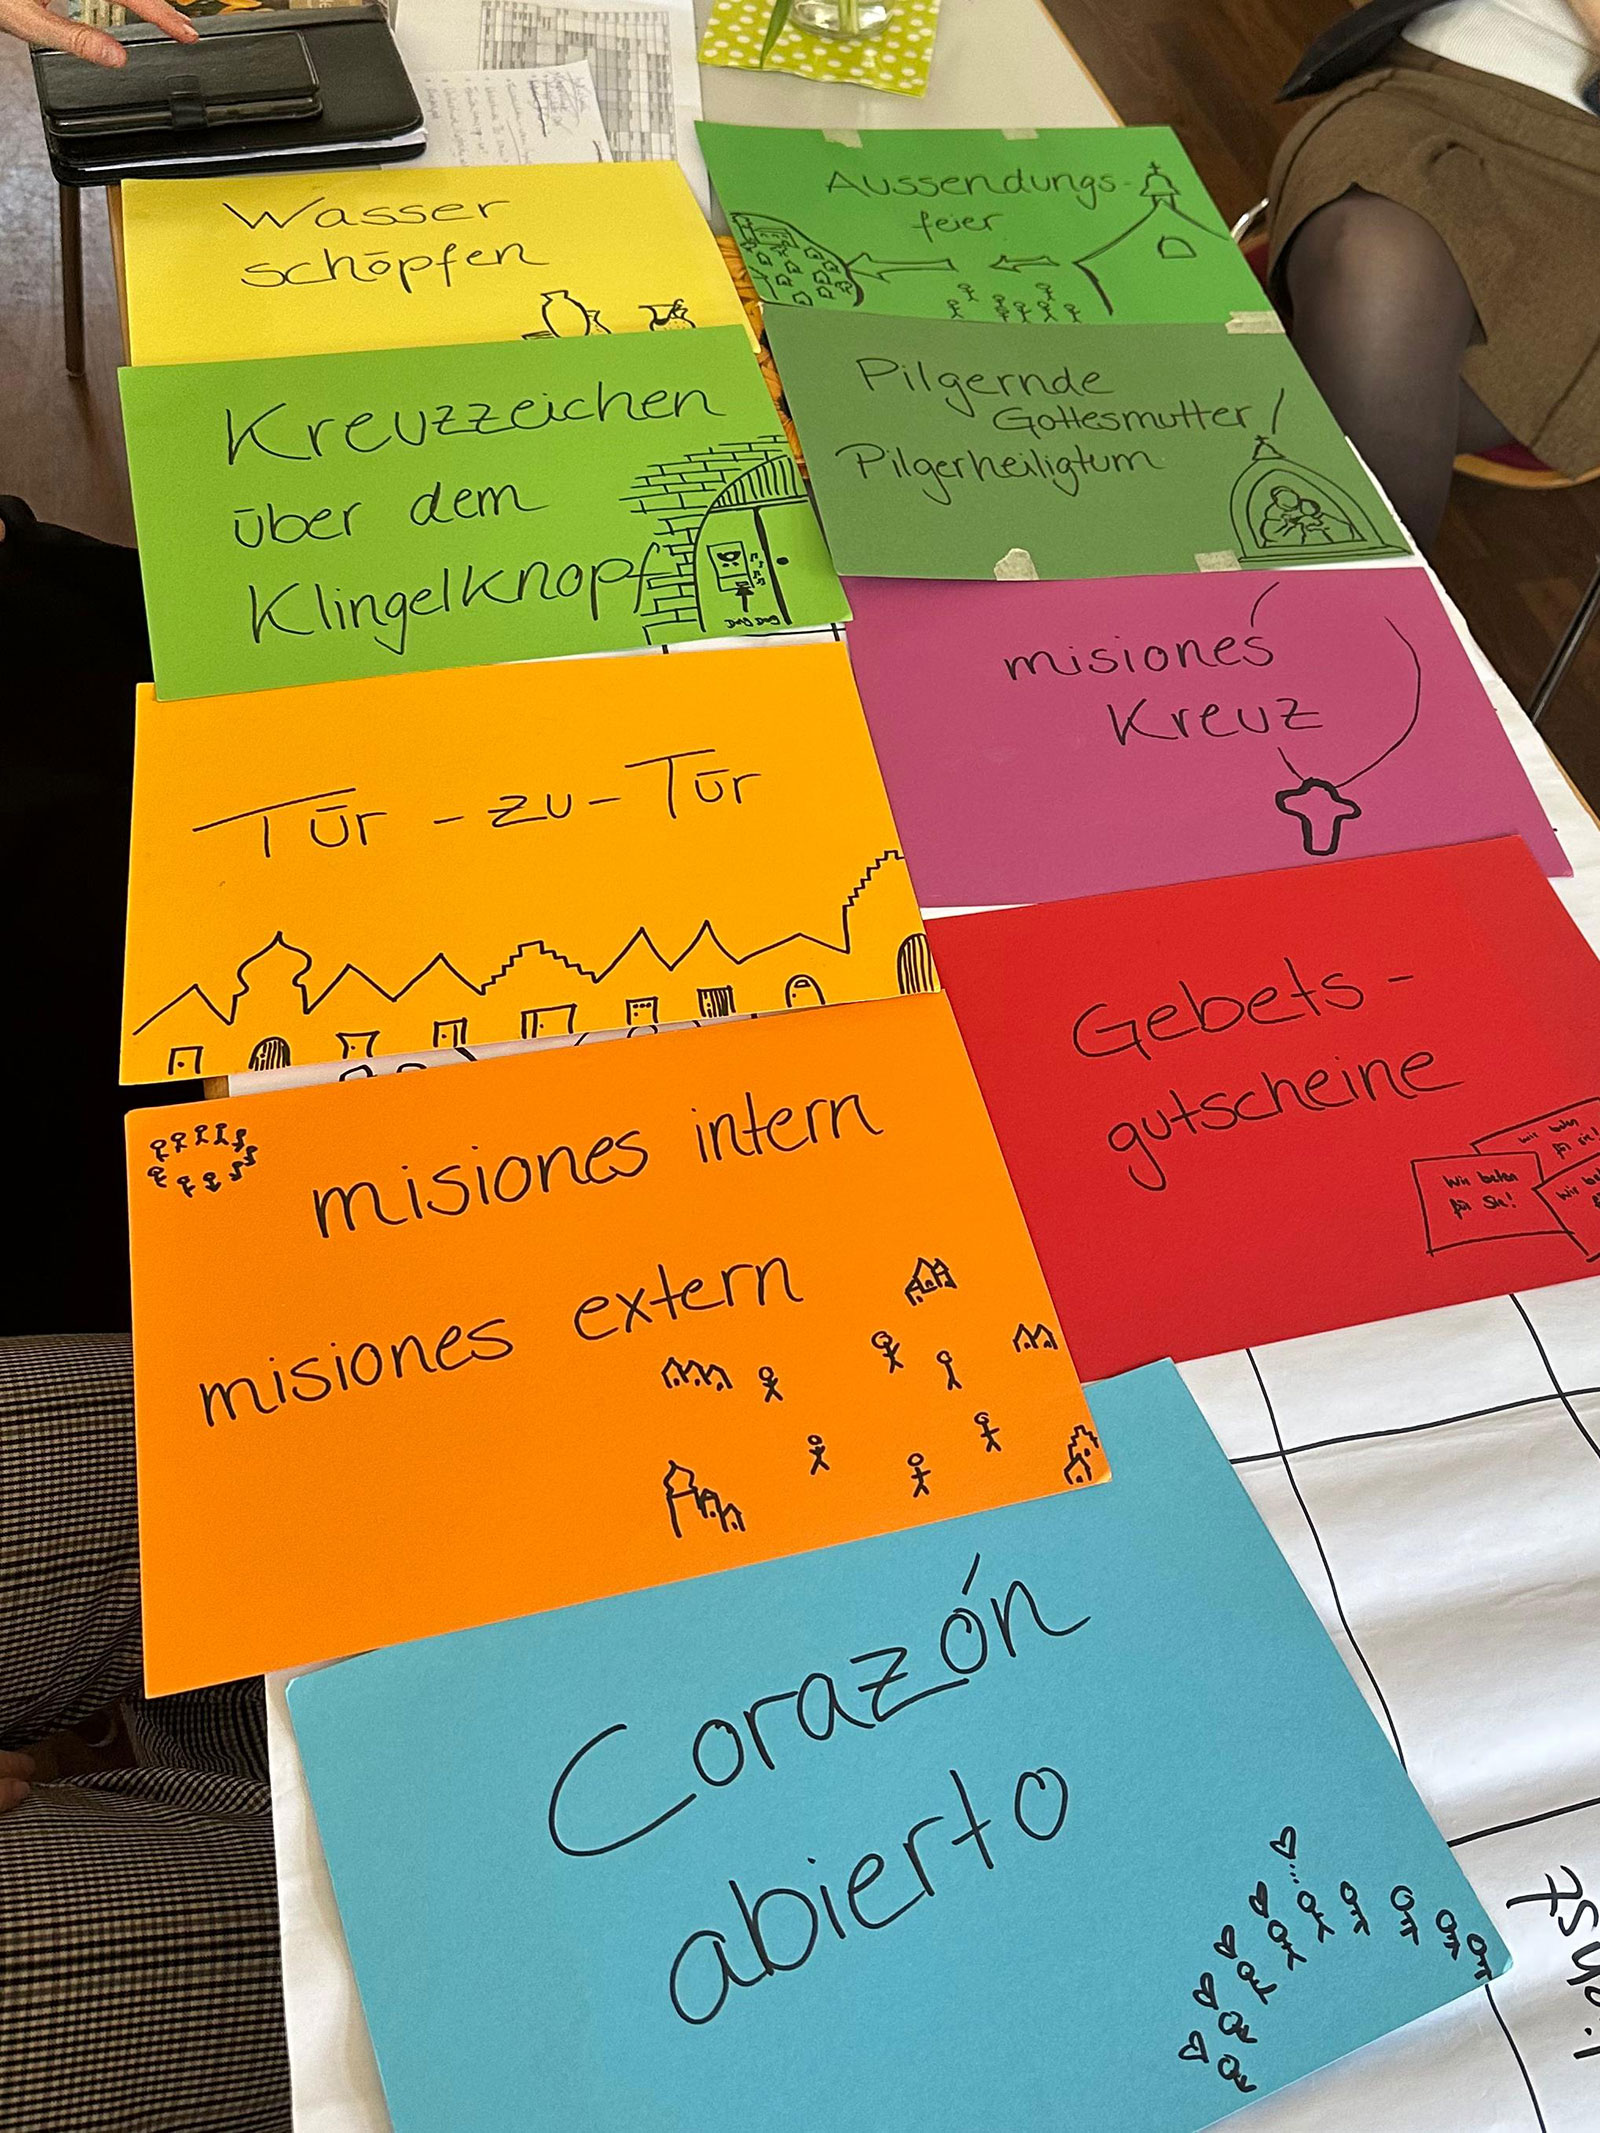 Wasser
schöpfen
Aussendungs-
feier
Kreuzzeichen
über dem
Klingelknopf
Pilgernde
Gottesmutter /
Pilgerheiligtum
Tür-zu-Tür
misiones
Kreuz
misiones intern
misiones extern
Gebets-
gutscheine
Wir beten
für Sie!
Wir beten
für Sie!
Corazón
abierto